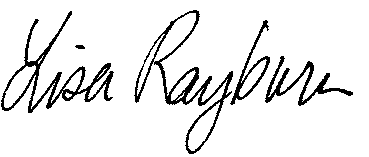 Lisa Rayburn